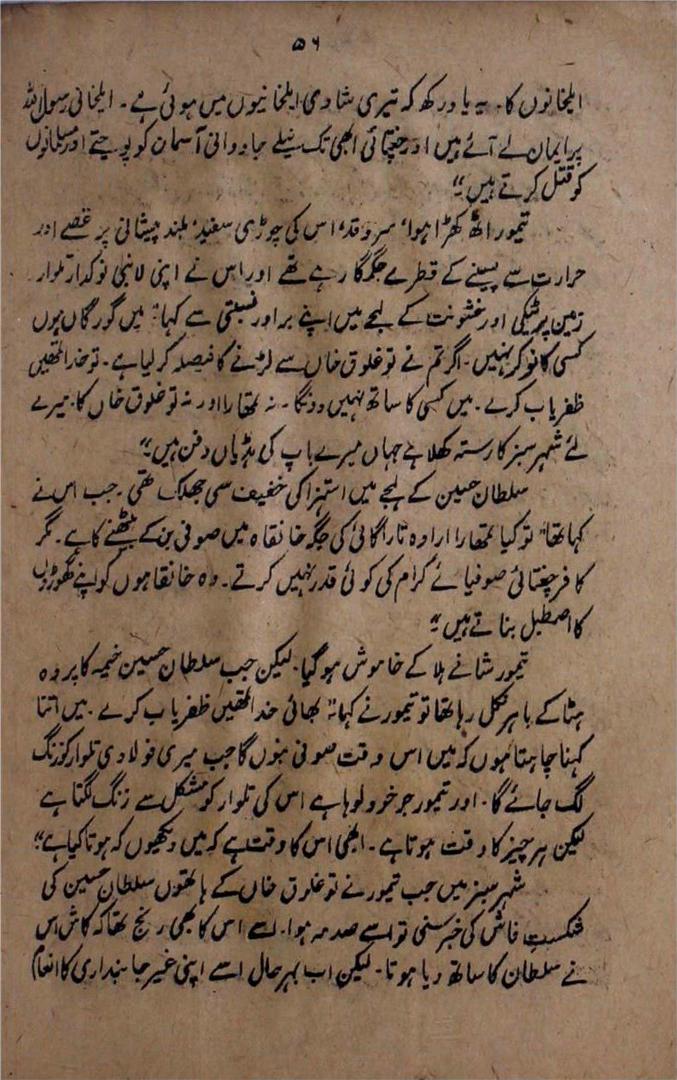 ۵۶
ایلخانوں کا۔ یہ یاد رکھ کہ تیری شادی ایلخانیوں میں ہوئی ہے۔ ایلخانی رسول اللہ
پر ایمان لے آئے ہیں اور چغتائی ابھی تک نیلے جاودانی آسمان کو پوجتے اور مسلمانوں
کو قتل کرتے ہیں"
تیمور اٹھ کھڑا ہوا، سرو قد، اس کی چوڑی سفید، بلند پیشانی پر غصے اور
حرارت سے پسینے کے قطرے جگمگا رہے تھے اور اس نے اپنی لانبی نوکدار تلوار
زمین پر ٹیکی اور خشونت کے لہجے میں اپنے برادر نسبتی سے کہا" میں گورگاں ہوں
کسی کا نوکر نہیں۔ اگر تم نے توغلوق خاں سے لڑنے کا فیصلہ کر لیا ہے۔ تو خدا تمھیں
ظفر یاب کرے۔ میں کسی کا ساتھ نہیں دونگا۔ نہ تمھارا اور نہ توغلوق خاں کا۔ میرے
لئے شہر سبز کا رستہ کھلا ہے جہاں میرے باپ کی ہڈیاں دفن ہیں"
سلطان حسین کے لہجے میں استہزا کی خفیف سی جھلک تھی۔ جب اس نے
کہا تھا" تو کیا تمھارا ارادہ تاراگائی کی جگہ خانقاہ میں صوفی بن کے بیٹھنے کا ہے۔ مگر
کافر چغتائی صوفیائے کرام کی کوئی قدر نہیں کرتے۔ وہ خانقاہوں کو اپنے گھوڑوں
کا اصطبل بناتے ہیں"
تیمور شانے ہلا کے خاموش ہو گیا۔ لیکن جب سلطان حسین خیمہ کا پردہ
ہٹا کے باہر نکل رہا تھا تو تیمور نے کہا" بھائی خدا تمھیں ظفر یاب کرے۔ میں اتنا
کہنا چاہتا ہوں کہ میں اس وقت صوفی بنوں گا جب میری فولادی تلوار کو زنگ
لگ جائے گا۔ اور تیمور جو خود لوہا ہے اس کی تلوار کو مشکل سے زنگ لگتا ہے
لیکن ہر چیز کا وقت ہوتا ہے۔ ابھی اس کا وقت ہے کہ میں دیکھیوں کہ ہوتا کیا ہے"
شہر سبز میں جب تیمور نے توغلوق خاں کے ہاتھوں سلطان حسین کی
شکست فاش کی خبر سنی تو اسے صدمہ ہوا۔ اسے اس کا بھی رنج تھا کہ کاش اس
نے سلطان کا ساتھ دیا ہوتا۔ لیکن اب بہرحال اسے اپنی غیر جانبداری کا انعام